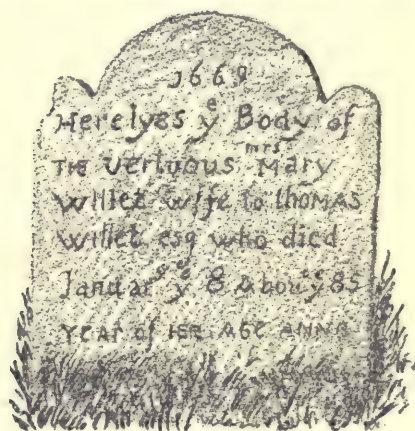 1669
Here lyes yᵉ Body of
THE vertuous mrs Mary
Willet wife to thomas
Willet esq who died
Januarʸ yᵉ 8 about yᵉ 85
YEAR of AGE ANNO